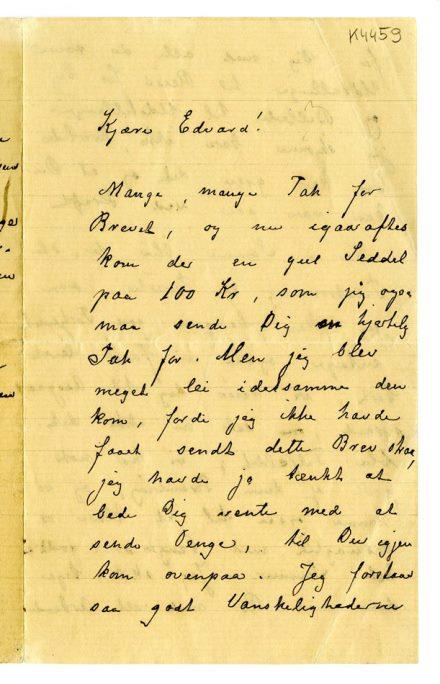 K4459
Kjære Edvard!
Mange, mange Tak for
Brevet, og nu igaaraftes
kom der en gul Seddel
paa 100 Kr, som jeg ogsaa
maa sende Dig en hjærtelig
Tak for. Men jeg blev
meget lei idetsamme den
kom, fordi jeg ikke havde
faaet sendt dette Brev
jeg havde jo tænkt at
bede Dig vente med at
sende Penge, til Du igjen
kom ovenpaa. Jeg forstaar
saa godt Vanskelighederne